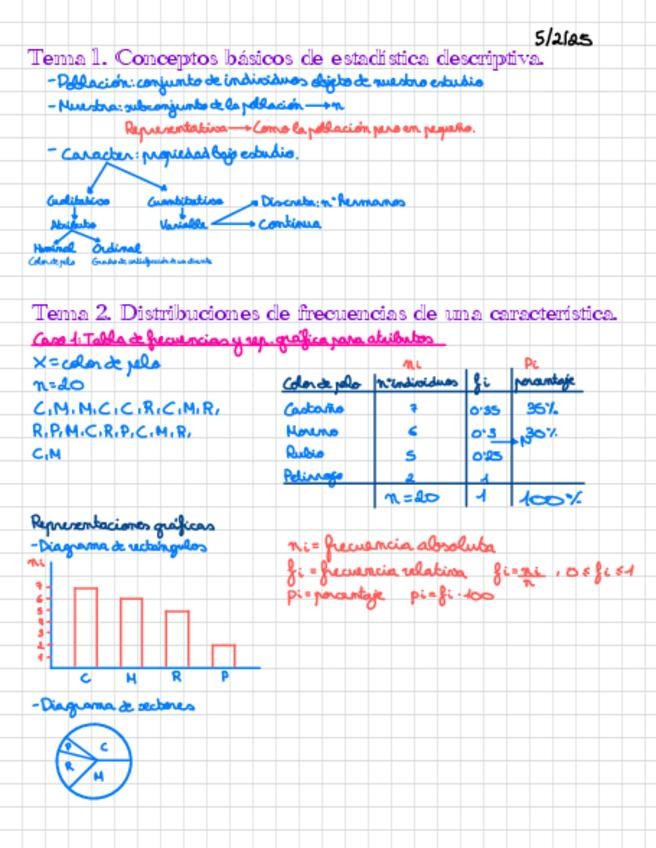 5/2/25
Tema 1. Conceptos básicos de estadística descriptiva.
-Población: conjunto de individuos objeto de nuestro estudio
-Muestra: subconjunto de la población → n
Representativa → Como la población pero en pequeño.
- Caracter: propiedad bajo estudio.
Cualitativo Cuantitativo Discreta: nº hermanos
Atributo Variable Continua
Nominal Ordinal
Color de pelo Grado de satisfacción de un cliente
Tema 2. Distribuciones de frecuencias de una característica.
Caso 1: Tabla de frecuencias y rep. gráfica para atributos
X = color de pelo
n=20
C, M, M, C, C, R, C, M, R,
R, P, M, C, R, P, C, M, R,
C, M
ni Pi
Color de pelo nº individuos fi porcentaje
Castaño 7 0'35 35%
Moreno 6 0'3 30%
Rubio 5 0'25
Pelirrojo 2 1
n=20 1 100%
Representaciones gráficas
-Diagrama de rectángulos
ni
7
6
5
4
3
2
1
C M R P
ni = frecuencia absoluta
fi = frecuencia relativa fi = ni/n , 0 ≤ fi ≤ 1
pi = porcentaje pi = fi · 100
-Diagrama de sectores
P C
R M